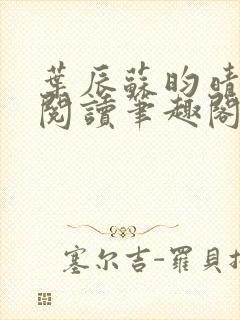 葉辰蘇昀晴
閱讀筆趣閣
塞尔吉-羅貝托